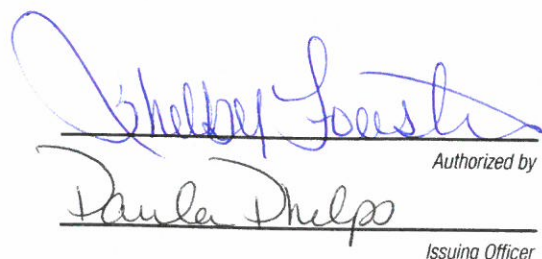 Shelby
Authorized by
Paula Phelps
Issuing Officer